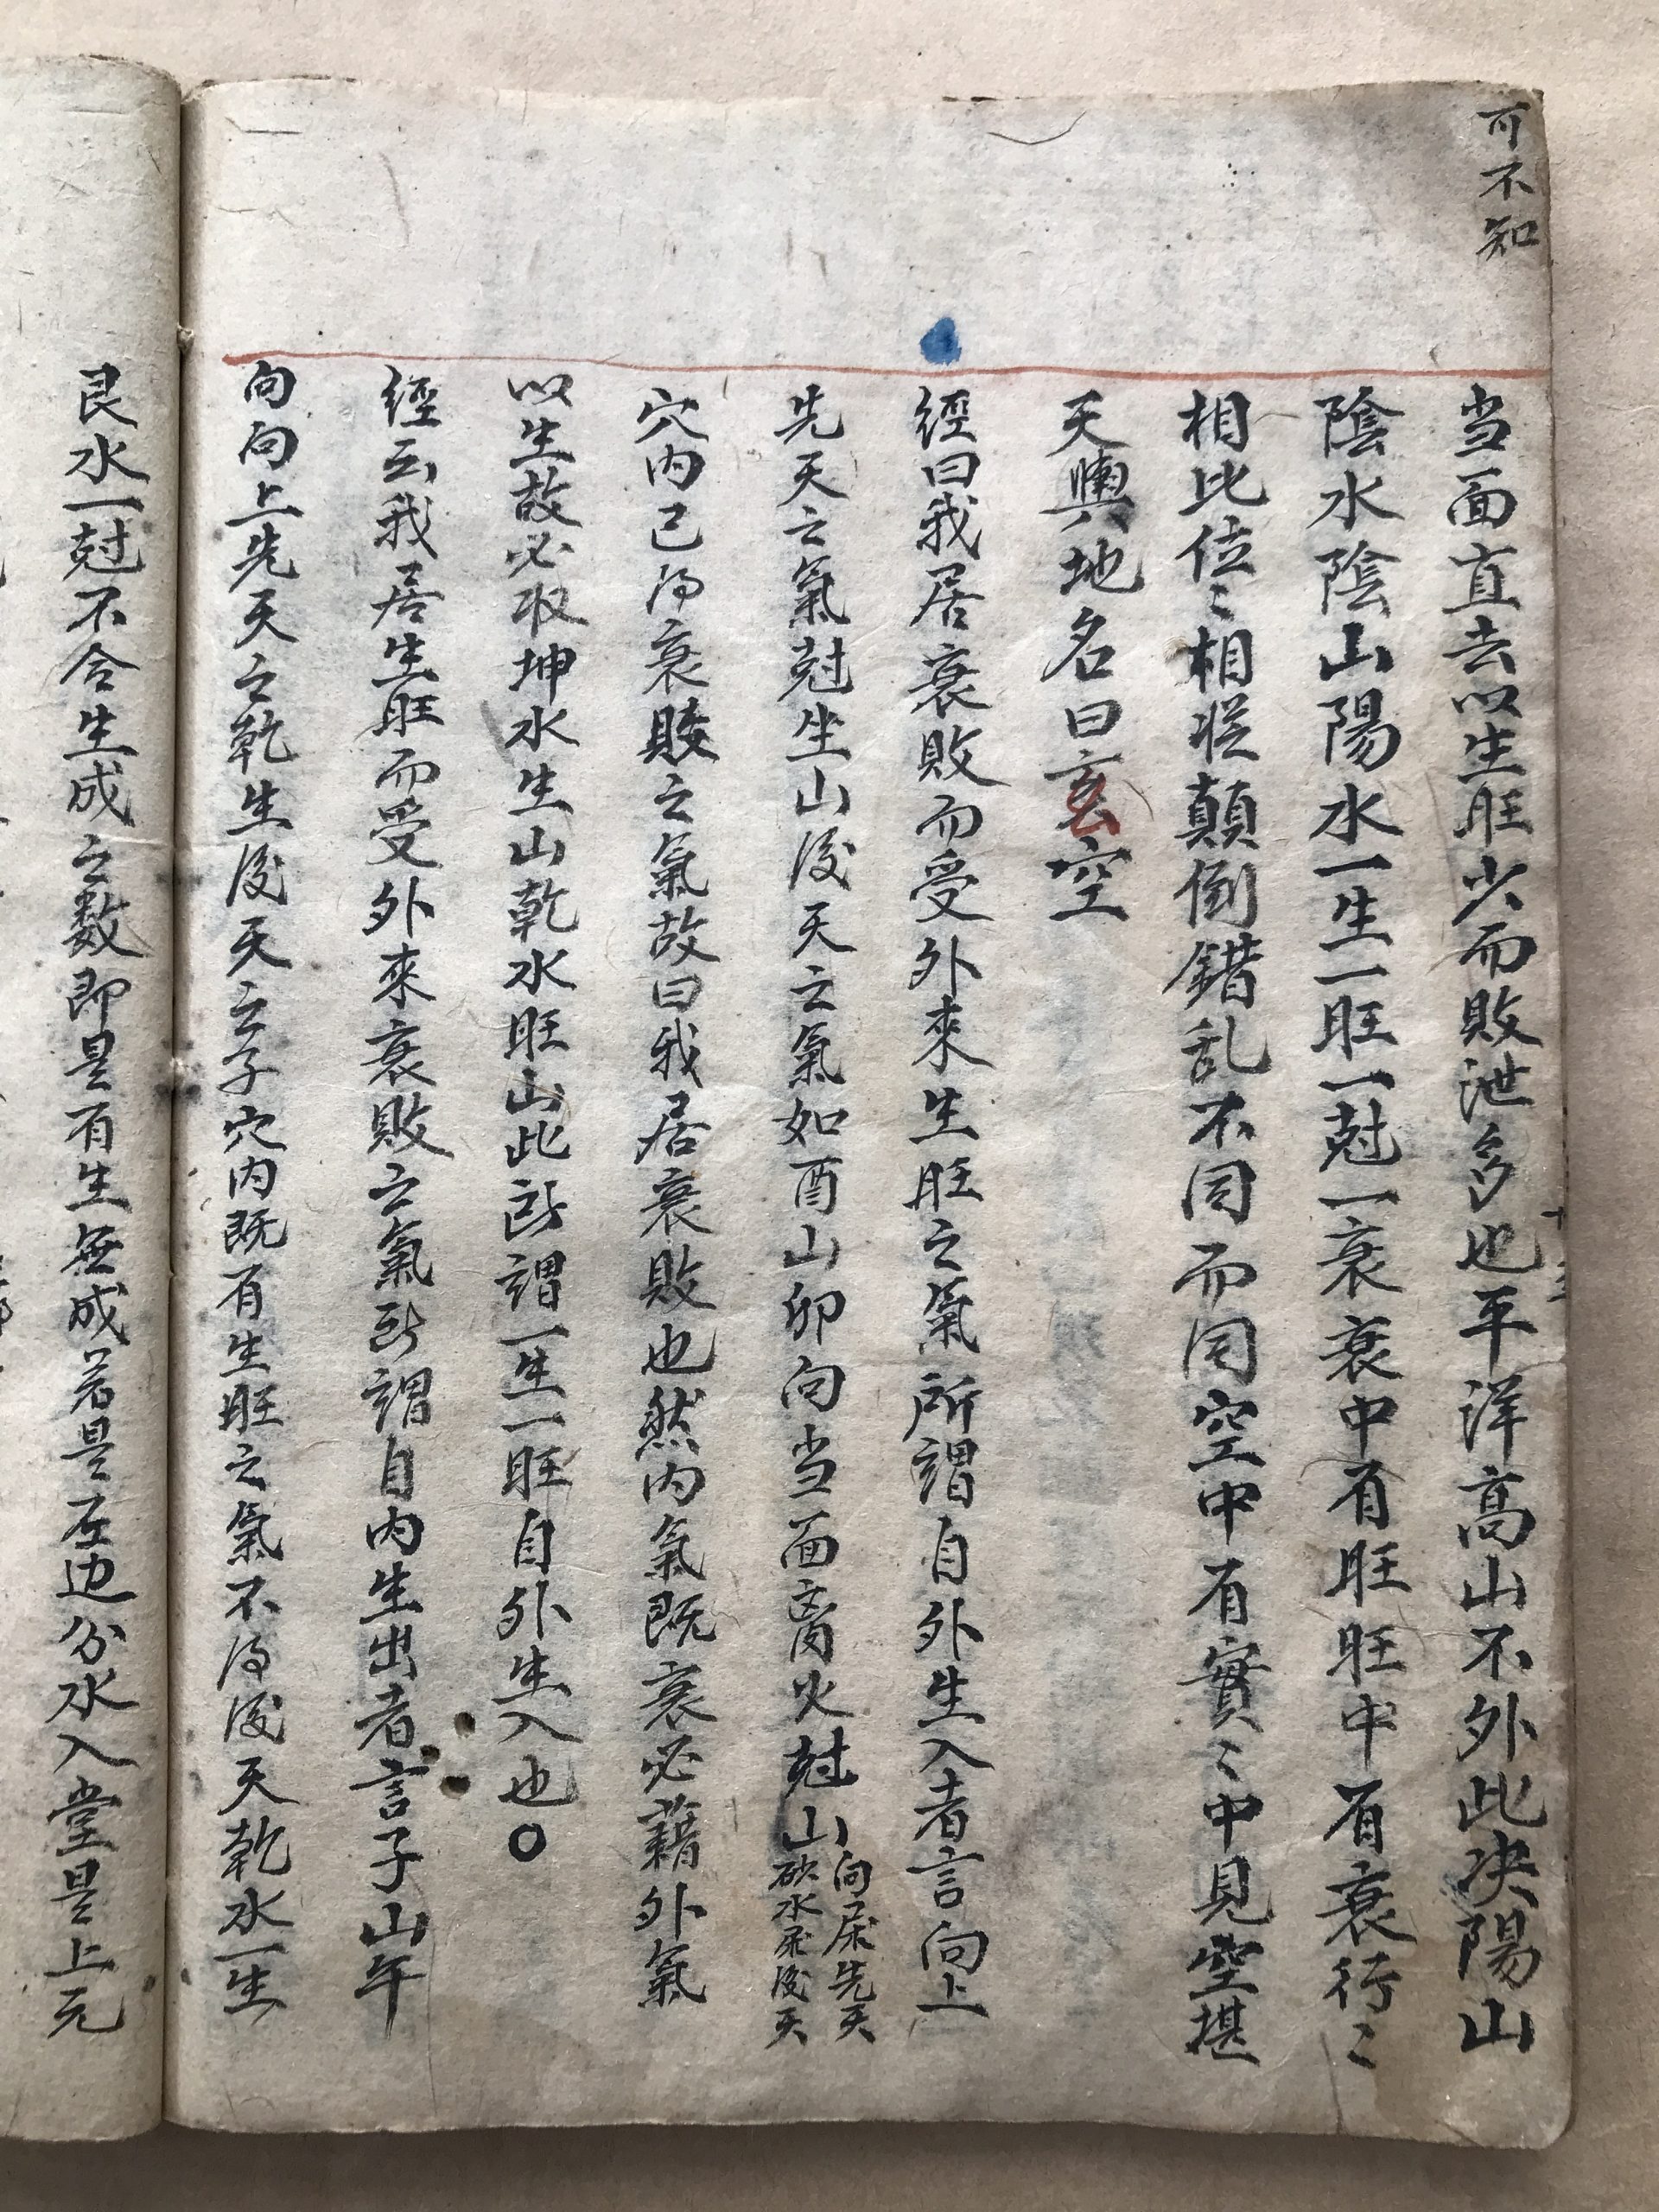 可不知
当面直去以生旺少而敗泄多也平洋高山不外此决陽山
陰水陰山陽水一生一旺一尅一衰衰中有旺旺中有衰行〻
相比位〻相従顛倒錯乱不同而同空中有實〻中見空堪
天輿地名曰玄空
經曰我居衰敗而受外來生旺之氣所謂自外生入者言向上
先天之氣尅坐山後天之氣如酉山卯向当面离火尅山向屎先天
砂水屎後天
穴内已得衰敗之氣故曰我居衰敗也然内氣既衰必藉外氣
以生故必取坤水生山乾水旺山此所謂一生一旺自外生入也〇
經云我居生旺而受外來衰敗之氣所謂自内生出者言子山午
向向上先天之乾生後天之子穴内既有生旺之氣不得後天乾水一生
艮水一尅不合生成之数即是有生無成若是左边分水入堂是上元